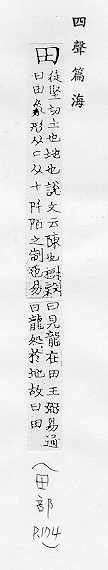 四聲篇海
田
徒堅切土也地也說文云陳也樹穀
曰田象形从口从十阡陌之制也易
曰見龍在田王弼易通
曰龍處於地故曰田
(田部
P.174)